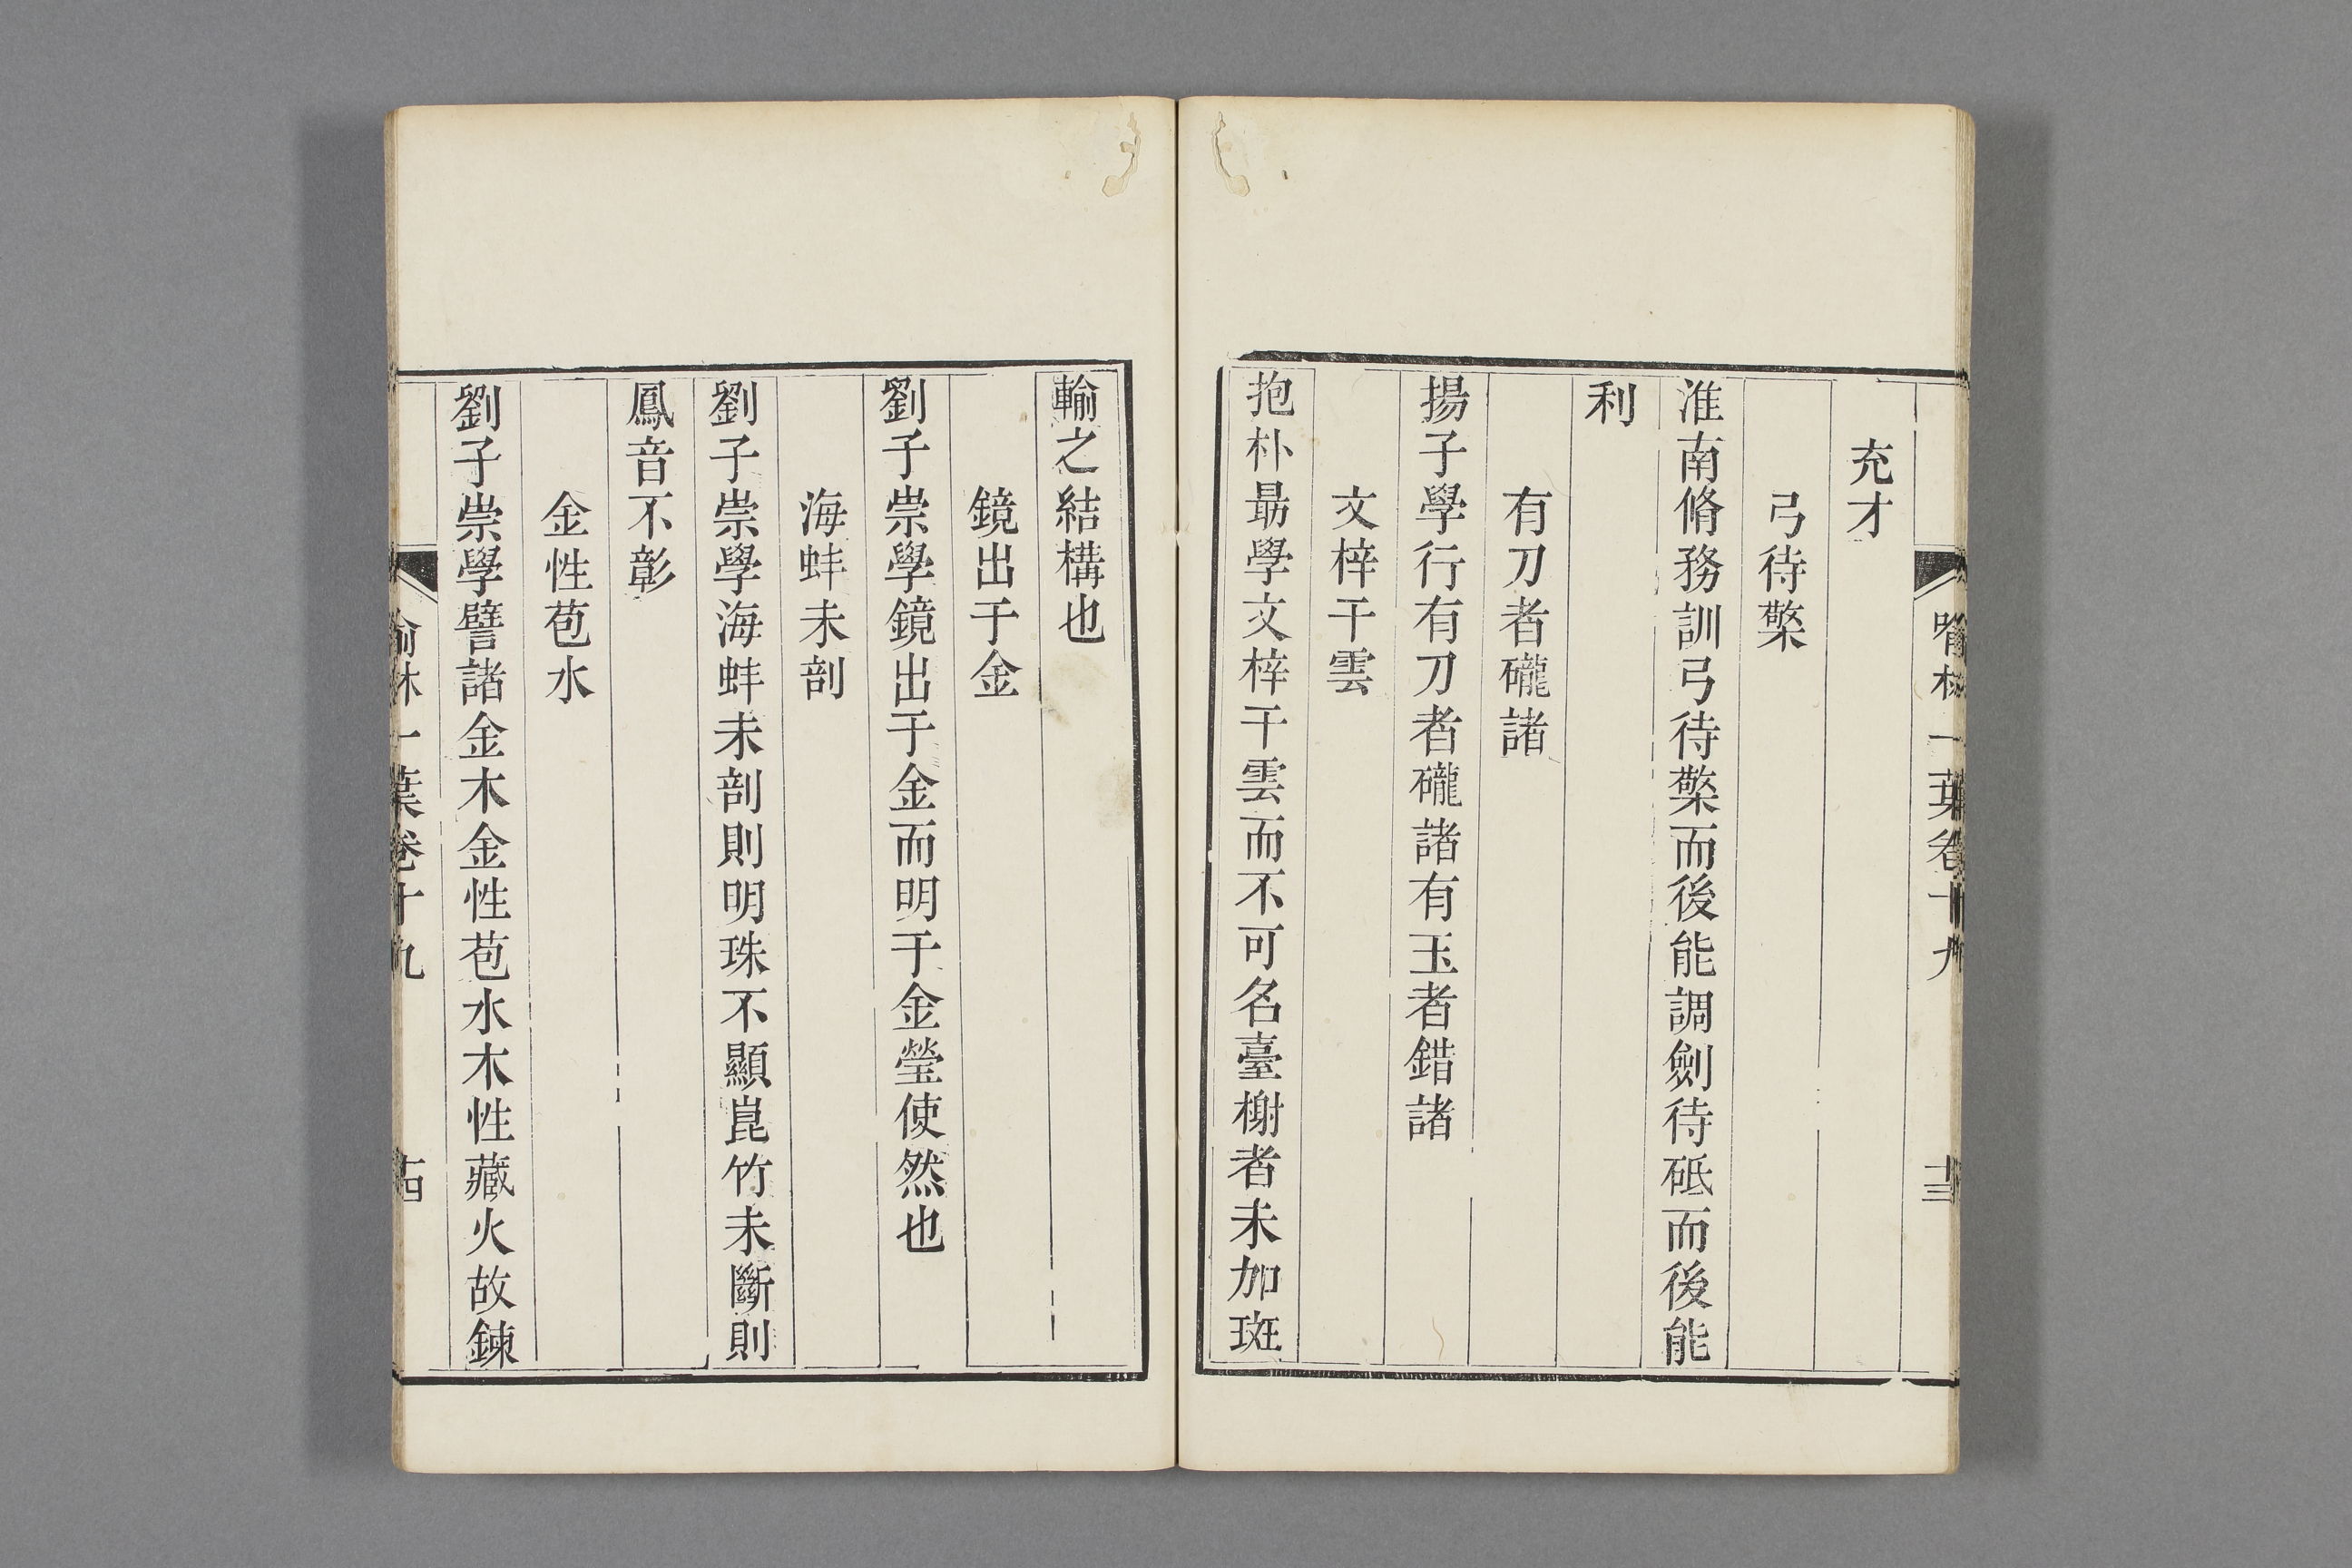 喻林一葉卷十九
十三
充才
弓待檠
淮南脩務訓弓待檠而後能調劍待砥而後能
利
有刀者礲諸
揚子學行有刀者礲諸有玉者錯諸
文梓干雲
抱朴朂學文梓干雲而不可名臺榭者未加斑
輸之結構也
鏡出于金
劉子崇學鏡出于金而明于金瑩使然也
海蚌未剖
劉子崇學海蚌未剖則明珠不顯崑竹未斷則
鳳音不彰
金性苞水
劉子崇學譬諸金木金性苞水木性藏火故鍊
喻林一葉卷十九
十四